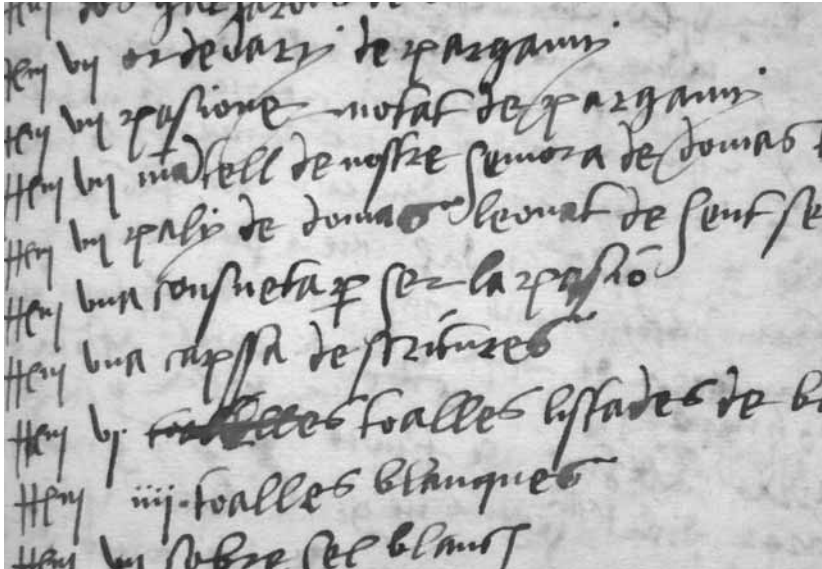 Item vn ordedari de pargami
Item vn pasione notat de pargami
Item vn mãtell de nostre senyora de domas
Item vn pali de domas leonat de sent se
Item vna consueta per ser la pasio
Item vna capssa descritures
Item vj toalles listades de
Item iiij toalles blanques
Item vn sobre cel blanch